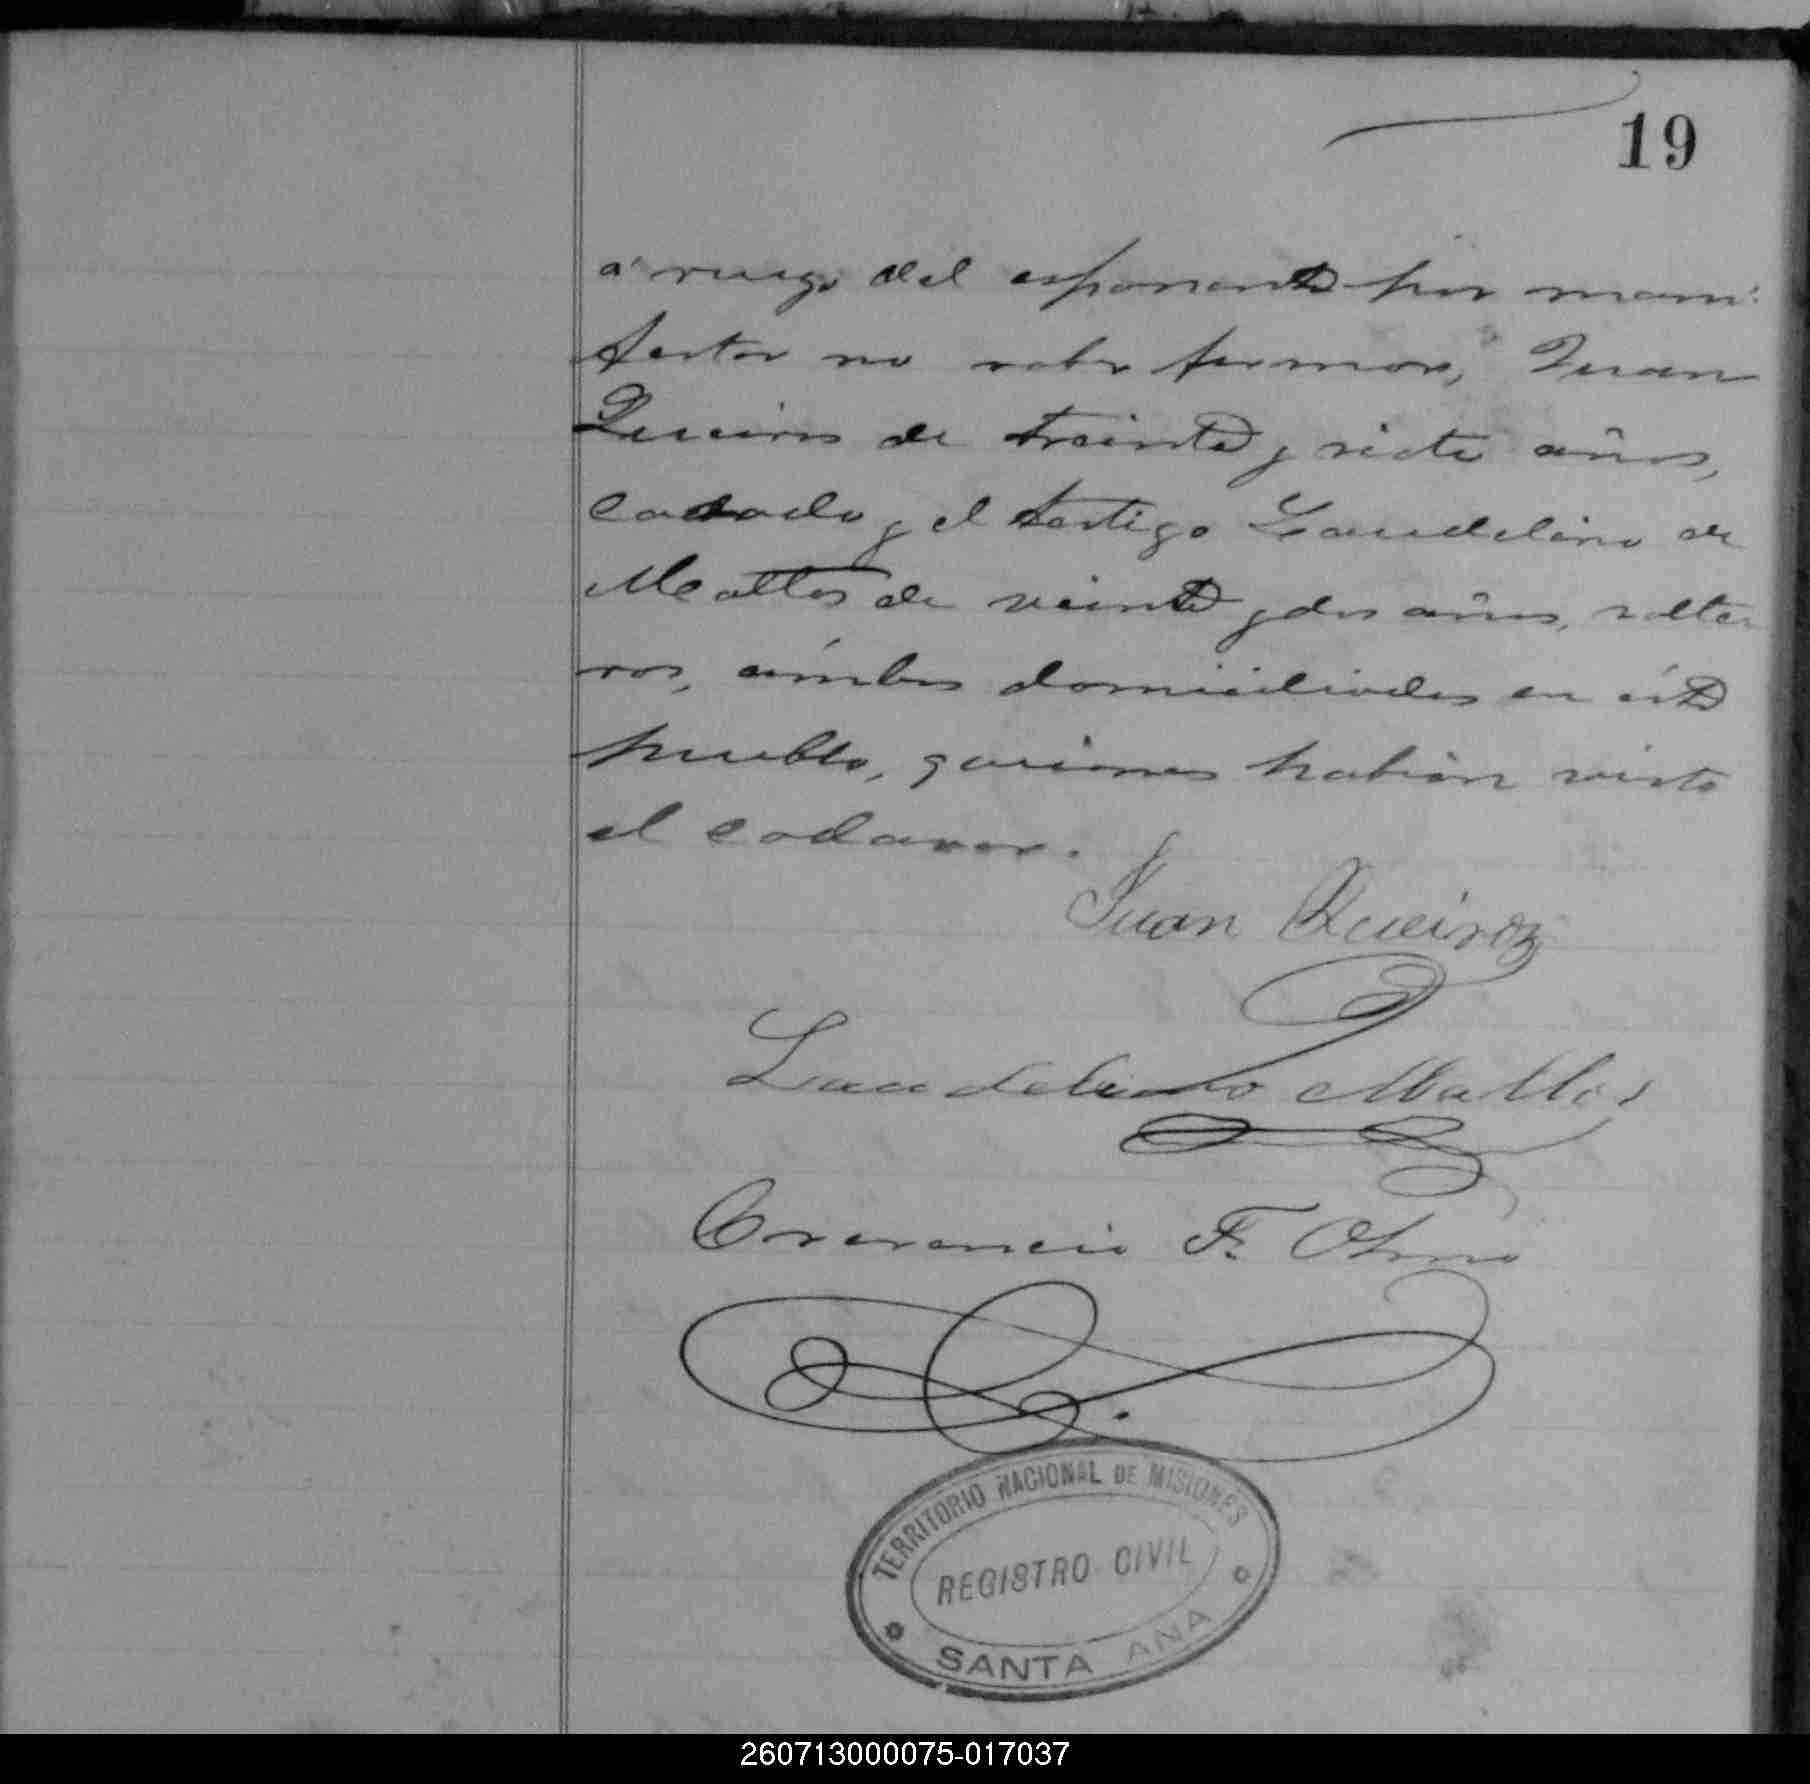 19
á ruego del esponente por mani:
festar no saber firmar, Juan
Queiros de treinta y siete años,
casado y el testigo Laudelino de
Mattos de veinte y dos años, solte
ros, ámbos domiciliados en éste
pueblo, quienes habian visto
el cadaver.
Juan Queiroz
Laudelino Mattos
Crecencio F. Olmo
TERRITORIO NACIONAL DE MISIONES
REGISTRO CIVIL
SANTA ANA
260713000075-017037